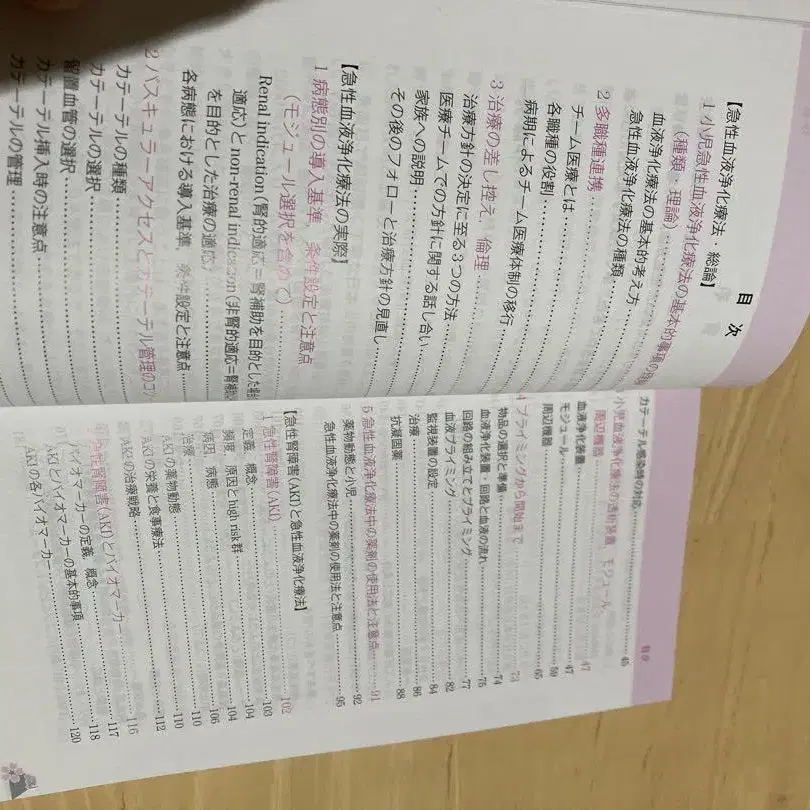 目 次
【急性血液浄化療法・総論】
1 小児急性血液浄化療法の基本的事項の
（種類・理論）
血液浄化療法の基本的考え方
急性血液浄化療法の種類
2 多職種連携
チーム医療とは
各職種の役割
病期によるチーム医療体制の移行
3 治療の差し控え，倫理
治療方針の決定に至る3つの方法
医療チームでの方針に関する話し合い
家族への説明
その後のフォローと治療方針の見直し
【急性血液浄化療法の実際】
1 病態別の導入基準，条件設定と注意点
（モジュール選択を含めて）
Renal indication (腎的適応＝腎補助を目的とした
適応) と non-renal indication (非腎的適応＝腎補助
を目的とした治療の適応)
各病態における導入基準，条件設定と注意点
2 バスキュラーアクセスとカテーテル管理のコツ
カテーテルの種類
カテーテルの選択
留置血管の選択
カテーテル挿入時の注意点
カテーテルの管理
目次
カテーテル感染時の対応 45
小児血液浄化療法の透析装置，モジュール，
周辺機器 47
血液浄化装置 47
モジュール 59
周辺機器 65
4 プライミングから開始まで 73
物品の選択と準備 74
血液浄化装置・回路と血液の流れ 75
回路の組み立てとプライミング 77
血液プライミング 82
監視装置の設定 84
治療 86
抗凝固薬 88
5 急性血液浄化療法中の薬剤の使用法と注意点 91
薬物動態と小児 92
急性血液浄化療法中の薬剤の使用法と注意点 95
【急性腎障害(AKI)と急性血液浄化療法】
1 急性腎障害(AKI) 102
定義，概念 103
頻度，原因と high risk 群 104
病因，病態 104
治療 106
AKIの薬物動態 110
AKIの栄養と食事療法 110
AKIの治療戦略 112
急性腎障害(AKI)とバイオマーカー 116
バイオマーカーの定義，概念 117
AKIとバイオマーカーの基本的事項 118
AKIの各バイオマーカー 120